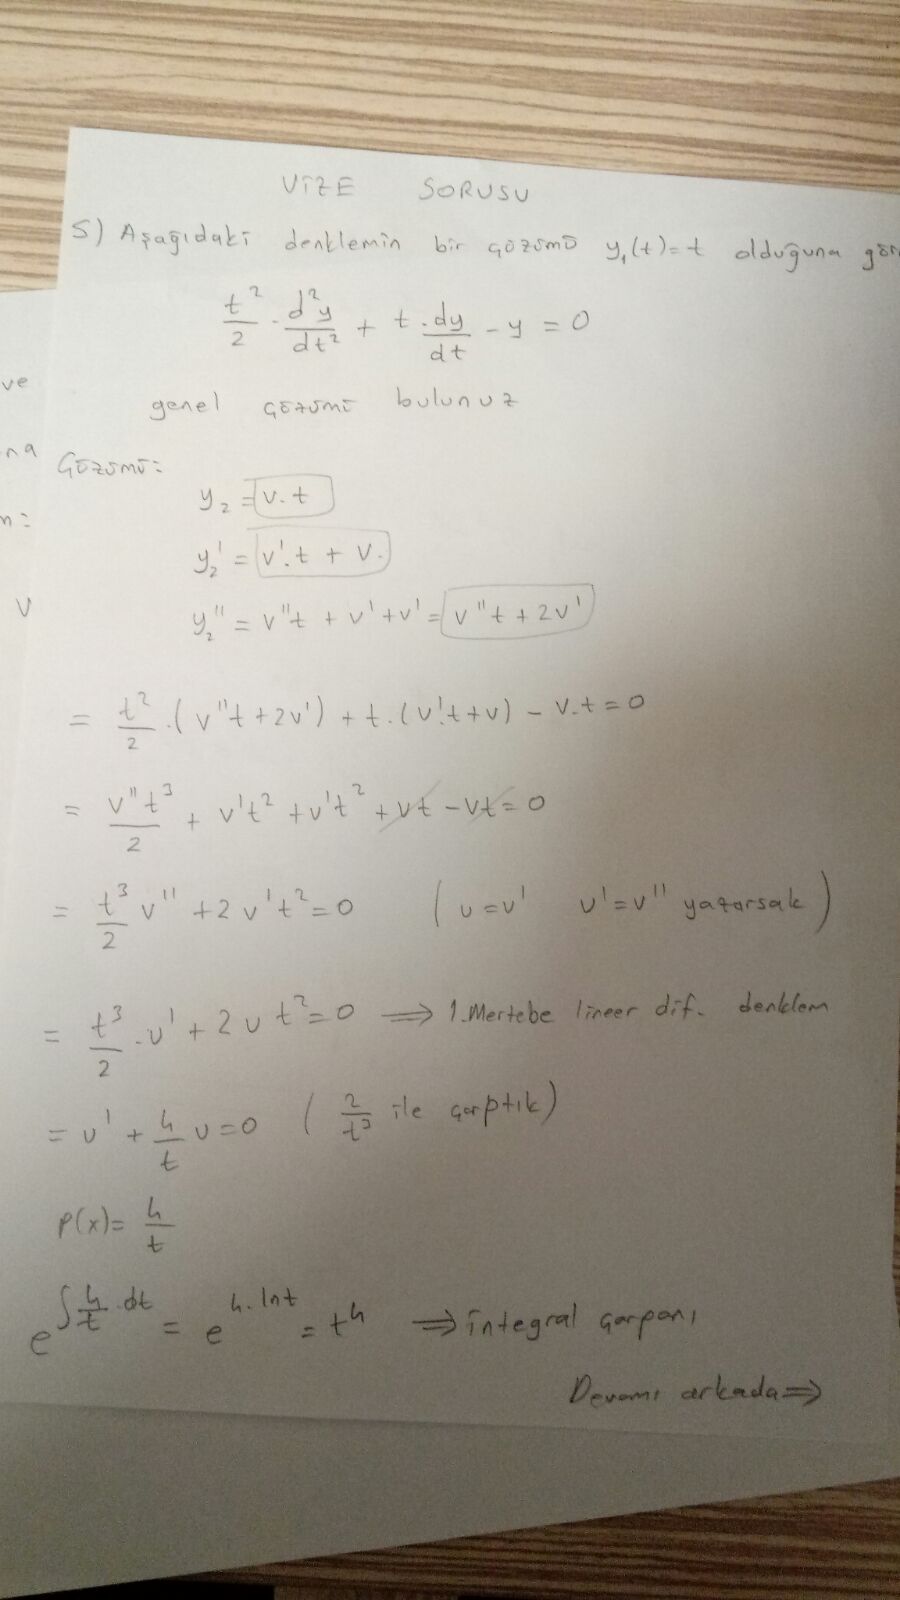 VİZE SORUSU
S) Aşağıdaki denklemin bir çözümü y₁(t)=t olduğuna göre
t²/2 · d²y/dt² + t · dy/dt - y = 0
genel çözümü bulunuz
ve
na
Çözümü:
m:
y₂ = v.t
y₂' = v'.t + v.
v
y₂'' = v''t + v' + v' = v''t + 2v'
= t²/2 .(v''t+2v') + t.(v'.t+v) - v.t = 0
= v''t³/2 + v't² + v't² + vt - vt = 0
= t³/2 v'' + 2v't² = 0 (u=v' u'=v'' yazarsak)
= t³/2 .u' + 2ut² = 0 ⟹ 1.Mertebe lineer dif. denklem
= u' + 4/t u = 0 (2/t³ ile çarptık)
P(x) = 4/t
e^∫4/t.dt = e^4.lnt = t⁴ ⟹ İntegral çarpanı
Devamı arkada ⟹